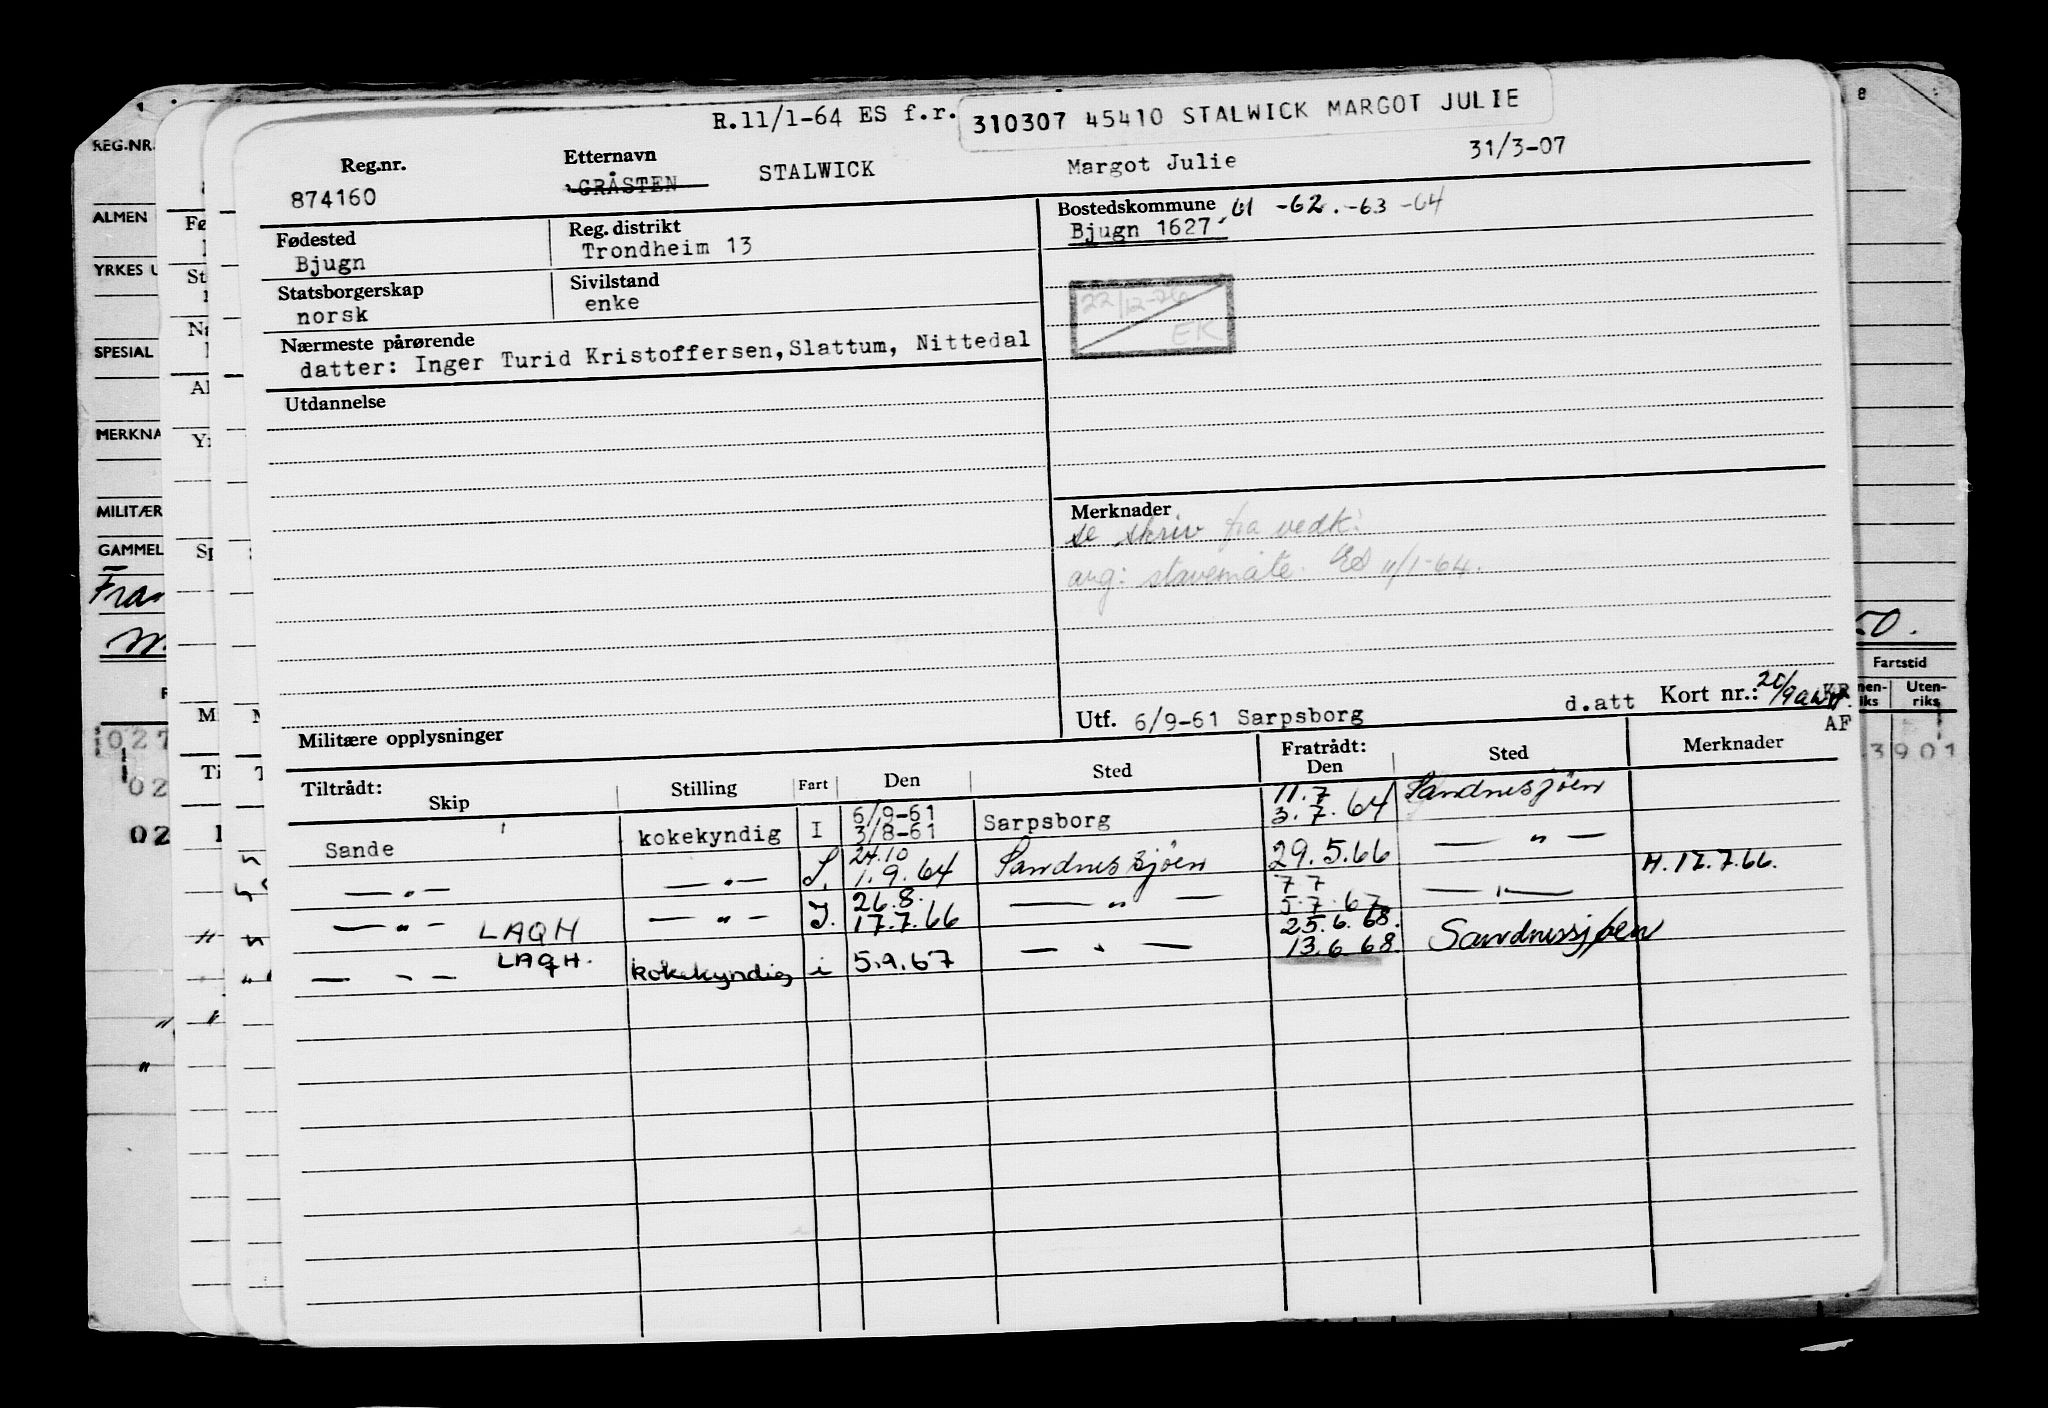 R.11/1-64 ES f.r. 310307 45410 STALWICK MARGOT JULIE
Reg.nr. Etternavn
874160 GRÅSTEN STALWICK Margot Julie 31/3-07
Fødested Reg. distrikt Bostedskommune 61 -62. -63 -64
Bjugn Trondheim 13 Bjugn 1627
Statsborgerskap Sivilstand
norsk enke
22/12-76
EK
Nærmeste pårørende
datter: Inger Turid Kristoffersen, Slattum, Nittedal
Utdannelse
Merknader
se skriv fra vedk:
ang: stavemåte. ES 11/1-64.
Utf. 6/9-61 Sarpsborg d.att Kort nr.:
AF
Militære opplysninger
Tiltrådt: Skip Stilling Fart Den Sted Fratrådt: Den Sted Merknader
Sande kokekyndig I 6/9-61 3/8-61 Sarpsborg 11.7 3.7.64 Sandnessjøen
— " — — " — 24.10 1.9.64 Sandnessjøen 29.5.66 — " — H. 17.7.66.
— " — LAQH — " — I. 26.8. 17.7.66 — " — 7 7 5.7.67 — " —
— " — LAQH. kokekyndig i 5.9.67 — " — 25.6.68. 13.6.68 Sandnessjøen
REG.NR.
ALMEN
YRKES U
SPESIAL
MERKNA
MILITÆR
GAMMEL
Fra
50.
Fartstid
Uten-
riks
3901
027
02
02
8